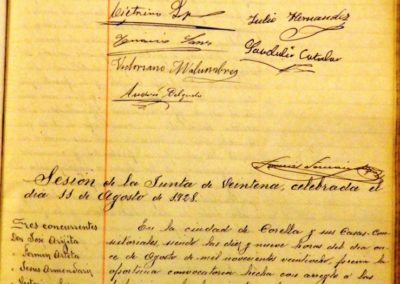 Julio Hernandez
Victoriano Malumbres
Andrés Delgado
Sesión de la Junta de Veintena, celebrada el
día 11 de Agosto de 1928.
Sres concurrentes
Don José Arijita
" Fermín Arrieta
" Jesus Armendariz
En la ciudad de Corella y sus Casas Con-
sistoriales siendo las diez y nueve horas del día on-
ce de Agosto de mil novecientos veintiocho, previa la
oportuna convocatoria hecha con arreglo a las